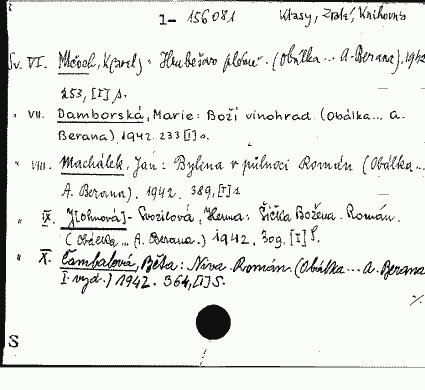 1- 156081 Klasy, Zralé, Knihovna
Sv. VI. Mloch, K(arel): Hrubešovo plémě. (Obálka... A. Berana). 1942
253, [I] s.
" VII. Damborská, Marie: Boží vinohrad. (Obálka... A.
Berana) 1942. 233 [I] s.
" VIII. Machálek, Jan: Bylina v půlnoci Román (Obálka...
A. Berana). 1942. 389, [I] s.
" IX. J[ohnová]- Svozilová, Herma: Šička Božena. Román.
(Obálka... A. Berana.) 1942. 309. [I] S.
" X. Čambalová, Běta: Niva. Román. (Obálka... A. Berana
I. vyd.) 1942. 364, [I] S.
S